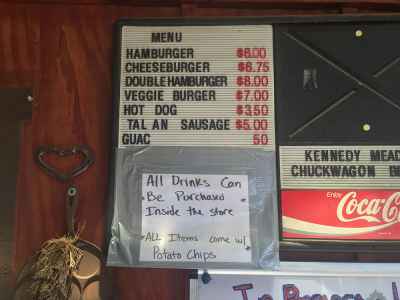 MENU
HAMBURGER $6.00
CHEESEBURGER $6.75
DOUBLE HAMBURGER $8.00
VEGGIE BURGER $7.00
HOT DOG $3.50
TAL AN SAUSAGE $5.00
GUAC 50
All Drinks Can
Be Purchased
Inside the store
ALL Items come w/
Potato Chips
KENNEDY MEAD
CHUCKWAGON
Enjoy
Coca-C